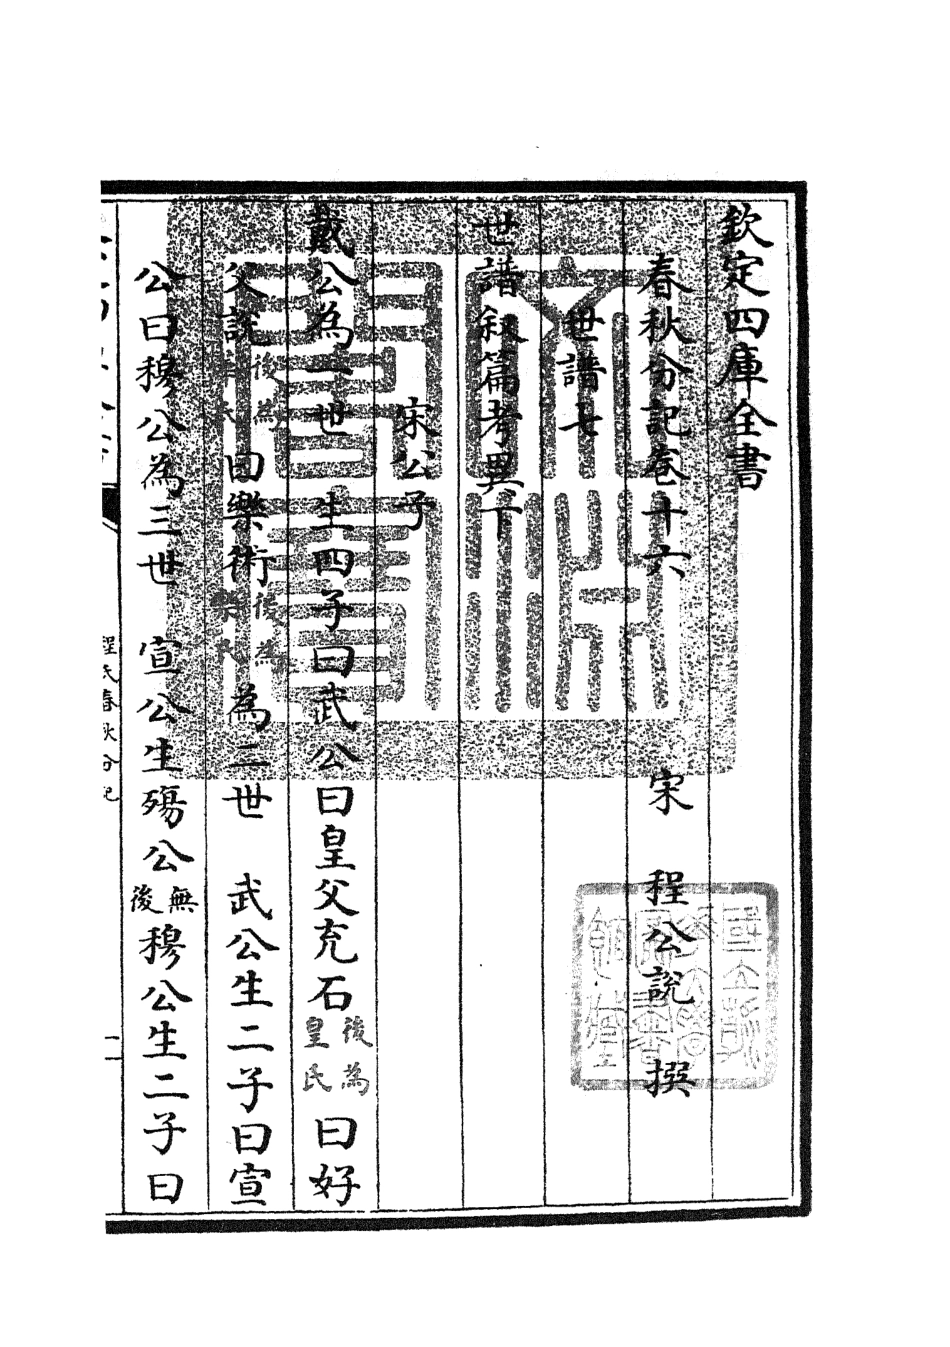 欽定四庫全書
春秋分記卷十六
宋 程公說 撰
世譜七
世譜敘篇考異下
宋公子
戴公為一世 生四子曰武公曰皇父充石後為皇氏曰好
父說後為華氏曰樂術後為樂氏為二世 武公生二子曰宣
公曰穆公為三世 宣公生殤公無後穆公生二子曰
程氏春秋分記